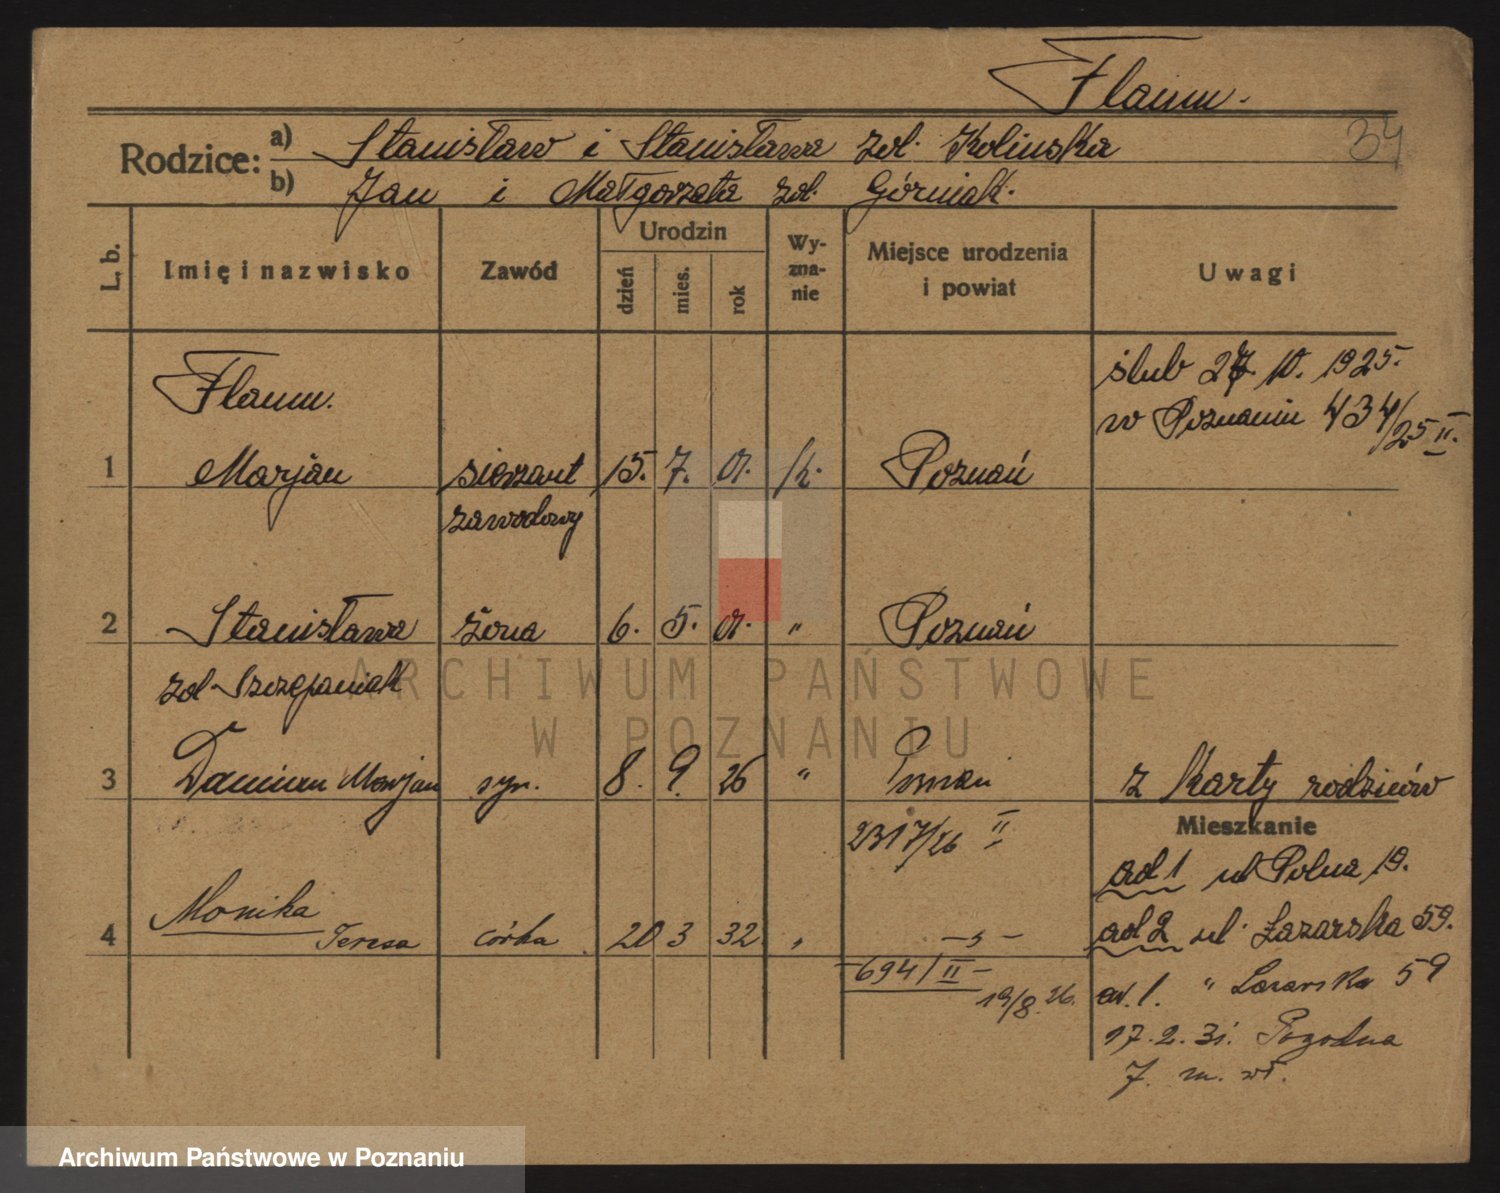 Flaum.
34
Rodzice: a) Stanisław i Stanisława zd. Kolinska
b) Jan i Małgorzata zd. Górniak.
L. b. Imię i nazwisko Zawód Urodzin dzień mies. rok Wyzna-nie Miejsce urodzenia i powiat Uwagi
ślub 27. 10. 1925.
w Poznaniu 434/25 II.
Flaum.
1 Marjan sierżant 15. 7. 01. k. Poznań
zawodowy
2 Stanisława żona 6. 5. 01. " Poznań
zd. Szczepaniak
3 Damian Marjan syn. 8. 9. 26 " Poznań z Karty rodziców
2317/26 II
Mieszkanie
ad 1 ul Polna 19.
4 Monika Teresa córka 20 3 32 " — " — ad 2 ul. Łazarska 59.
— 694/II —
19/8. 26. ad. 1. " Łazarska 59
17. 2. 31. Pogodna
7. m. wł.
ARCHIWUM PAŃSTWOWE
W POZNANIU
Archiwum Państwowe w Poznaniu